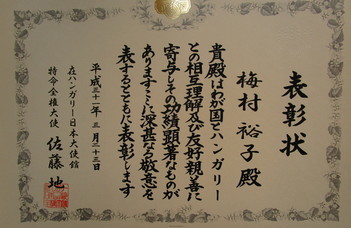 表彰状
梅村裕子殿
貴殿はわが国とハンガリー
との相互理解及び友好親善に
寄与しその功績顕著なものが
ありますここに深甚なる敬意を
表するとともに表彰します
平成三十一年三月二十三日
在ハンガリー日本大使館
特命全権大使 佐藤地